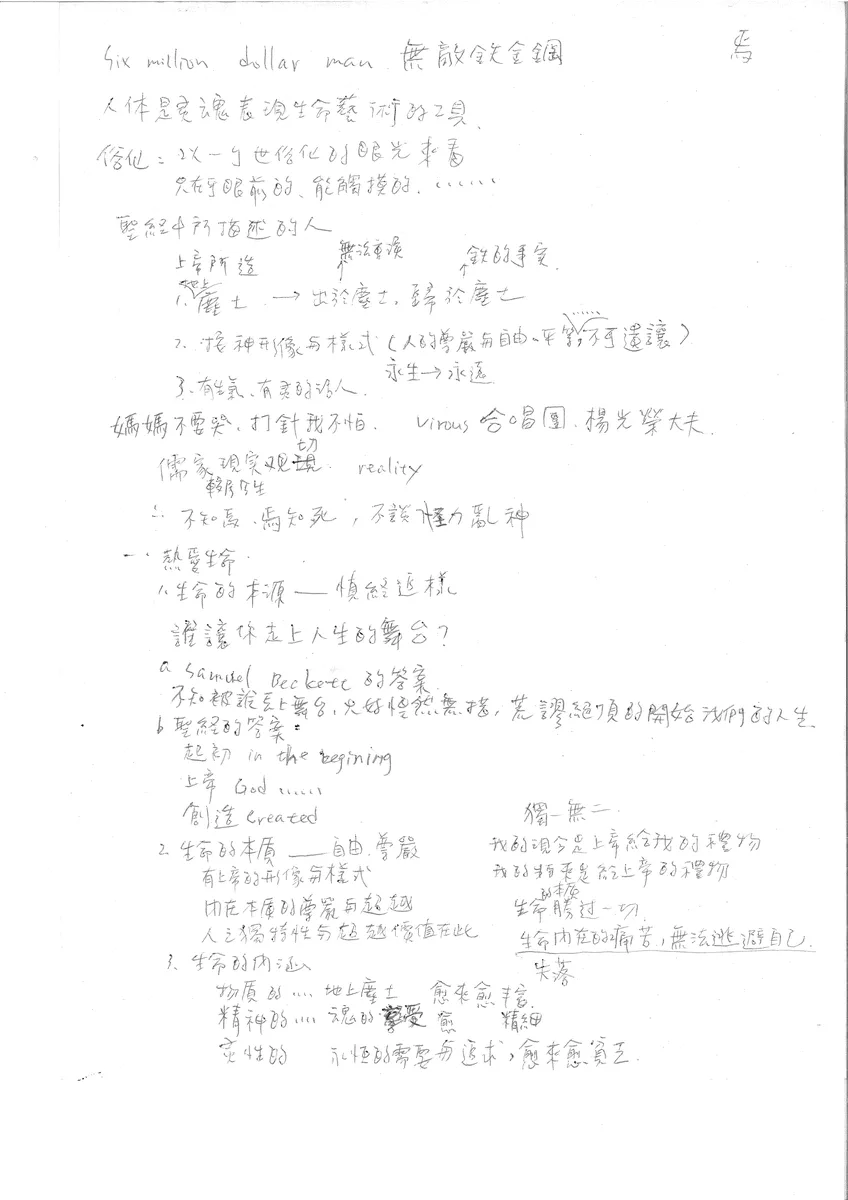 Six million dollar man 無敵鉄金鋼
焉
人体是灵魂表現生命藝術的工具
俗仙：以一个世俗仙的眼光來看
只在乎眼前的、能觸摸的.……
聖経中所描述的人
上帝所造 無法重演 鉄的事实
地上
1. 塵土 → 出於塵土, 歸於塵土
2. 按神形像与樣式（人的尊嚴与自由、平等, 不可遺讓）
永生→永遠
3. 有生氣、有灵的活人.
媽媽不要哭、打針我不怕. virous 合唱團、楊光榮大夫.
切
儒家現実观 reality
今生
∴ 不知焉、焉知死, 不談怪力亂神
一、熱愛生命.
1. 生命的本源——慎終追樣
誰讓你走上人生的舞台？
a Samuel Beckett 的答案
不知被誰丟上舞台, 只好惶然無措, 荒謬絕頂的開始我們的人生.
b 聖経的答案：
起初 in the begining
上帝 God ……
創造 Created
獨一無二.
2. 生命的本质——自由.尊嚴
我的現今是上帝給我的禮物
有上帝的形像与樣式
我的未來是給上帝的禮物
内在本质的尊嚴与超越
的本质
生命勝过一切.
人之獨特性与超越價值在此
生命内在的痛苦, 無法逃避自己.
3. 生命的内涵
失落
物质的 .... 地上塵土 愈來愈丰富.
精神的 .... 魂的享受 愈 精細
灵性的 永恒的需要与追求, 愈來愈貧乏.